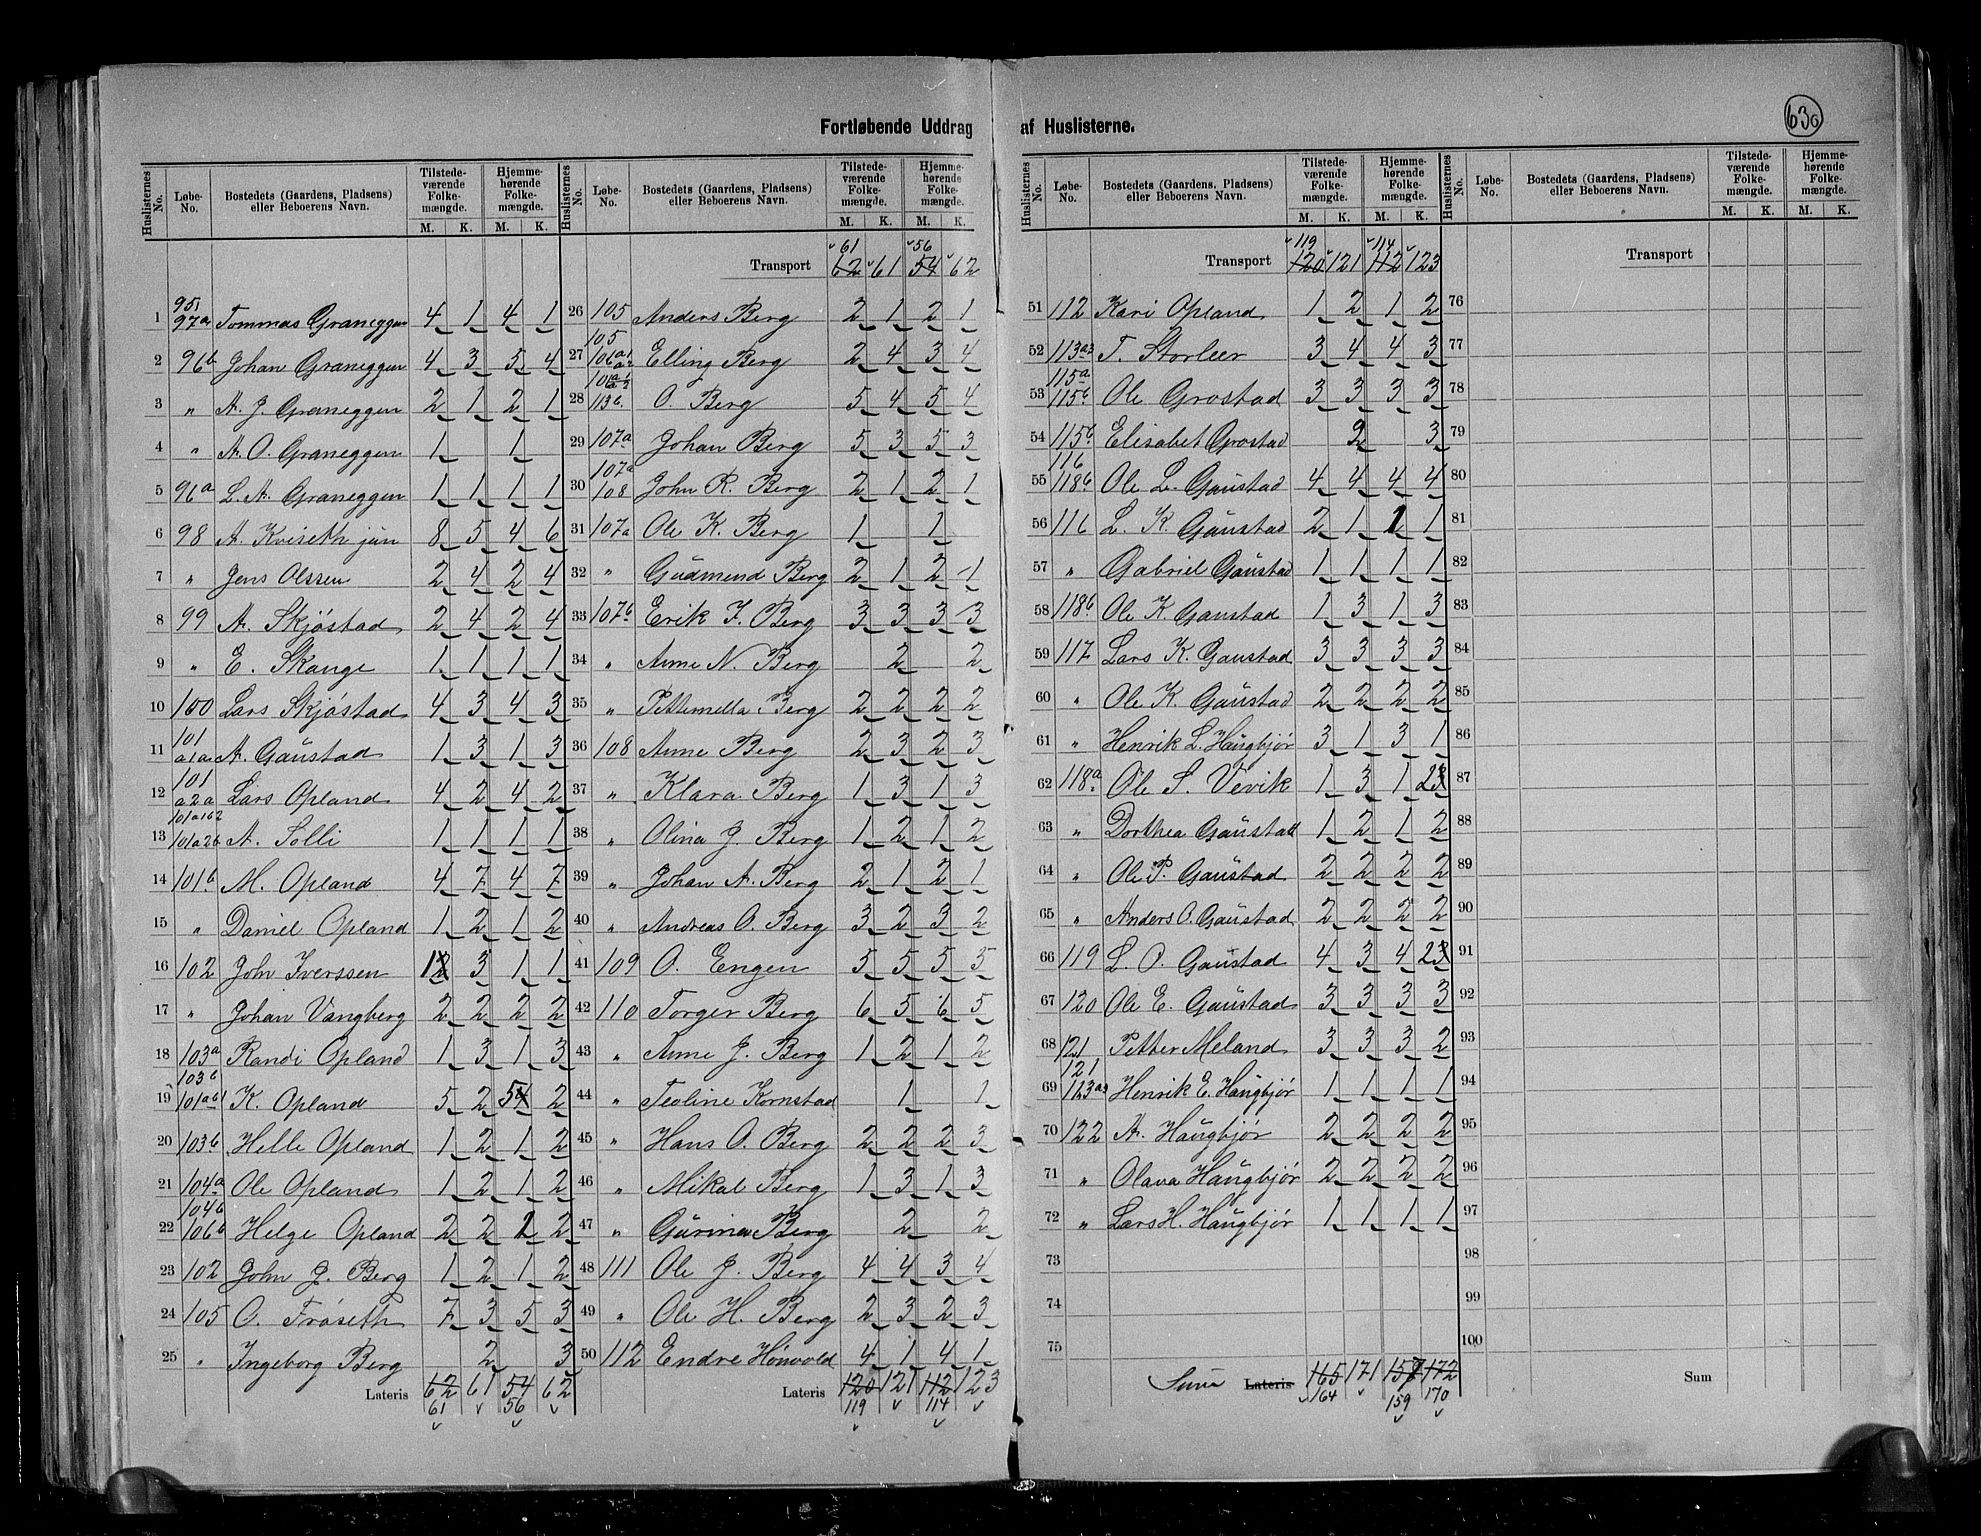 630
Fortløbende Uddrag af Huslisterne.
Huslisternes No. | Løbe-No. | Bostedets (Gaardens, Pladsens) eller Beboerens Navn. | Tilstedeværende Folkemængde. M. K. | Hjemmehørende Folkemængde. M. K.
1 95, 97a Tommas Graneggen 4 1 4 1
2 96b Johan Graneggen 4 3 5 4
3 " A. J. Graneggen 2 1 2 1
4 " A. O. Graneggen 1 1
5 96a L. A. Graneggen 1 1 1 1
6 98 A. Kviseth jun 8 5 4 6
7 " Jens Olssen 2 4 2 4
8 99 A. Skjøstad 2 4 2 4
9 " E. Skauge 1 1 1 1
10 100 Lars Skjøstad 4 3 4 3
11 101 a1a A. Gaustad 1 3 1 3
12 101 a2a Lars Opland 4 2 4 2
13 101a1b2 101a2b A. Solli 1 1 1 1
14 101b M. Opland 4 7 4 7
15 " Daniel Opland 1 2 1 2
16 102 John Iverssen 1 3 1 1
17 " Johan Vangberg 2 2 2 2
18 103a Randi Opland 1 3 1 3
19 103b 101ab1 K. Opland 5 2 5 2
20 103b Helle Opland 1 2 1 2
21 104a Ole Opland 1 2 1 2
22 104b 106b Helge Opland 2 2 2
23 102 John J. Berg 1 2 1 2
24 105 O. Frøseth 7 3 5 3
25 " Ingeborg Berg 2 3
Lateris 62 61 54 62
61 56
Transport 62 61 54 62
61 56
26 105 Anders Berg 2 1 2 1
27 105 106a1 Elling Berg 2 4 3 4
28 113b O. Berg 5 4 5 4
29 107a Johan Berg 5 3 5 3
30 107a 108 John R. Berg 2 1 2 1
31 107a Ole K. Berg 1 1
32 " Gudmund Berg 2 1 2 1
33 107b Erik J. Berg 3 3 3 3
34 " Anne N. Berg 2 2
35 " Petternella Berg 2 2 2 2
36 108 Anne Berg 2 3 2 3
37 " Klara Berg 1 3 1 3
38 " Olina J. Berg 1 2 1 2
39 " Johan A. Berg 2 1 2 1
40 " Andreas O. Berg 3 2 3 2
41 109 O. Engen 5 5 5 5
42 110 Torger Berg 6 5 6 5
43 " Anne J. Berg 1 2 1 2
44 " Teoline Kornstad 1 1
45 " Hans O. Berg 2 2 2 3
46 " Mikal Berg 1 3 1 3
47 " Gurina Berg 2 2
48 111 Ole J. Berg 4 4 3 4
49 " Ole H. Berg 2 3 2 3
50 112 Endre Hønvold 4 1 4 1
Lateris 120 121 112 123
119 114
Transport 120 121 112 123
119 114
51 112 Kari Opland 1 2 1 2
52 113a3 T. Storleer 3 4 4 3
53 115a 115b Ole Grostad 3 3 3 3
54 115b Elisabet Grostad 2 3
55 116 118b Ole L. Gaustad 4 4 4 4
56 116 L. K. Gaustad 2 1 1 1
57 " Gabriel Gaustad 1 1 1 1
58 118b Ole K. Gaustad 1 3 1 3
59 117 Lars K. Gaustad 3 3 3 3
60 " Ole K. Gaustad 2 2 2 2
61 " Henrik L. Haugbjør 3 1 3 1
62 118a Ole S. Vevik 1 3 1 2
63 " Dorthea Gaustad 1 2 1 2
64 " Ole P. Gaustad 2 2 2 2
65 " Anders O. Gaustad 2 2 2 2
66 119 L. O. Gaustad 4 3 4 2
67 120 Ole E. Gaustad 3 3 3 3
68 121 Petter Meland 3 3 3 2
69 121 113a Henrik E. Haugbjør 1 1 1 1
70 122 A. Haugbjør 2 2 2 2
71 " Olava Haugbjør 2 2 2 2
72 " Lars H. Haugbjør 1 1 1 1
73
74
75
Suma Lateris 165 171 157 172
164 159 170
Transport
76
77
78
79
80
81
82
83
84
85
86
87
88
89
90
91
92
93
94
95
96
97
98
99
100
Sum